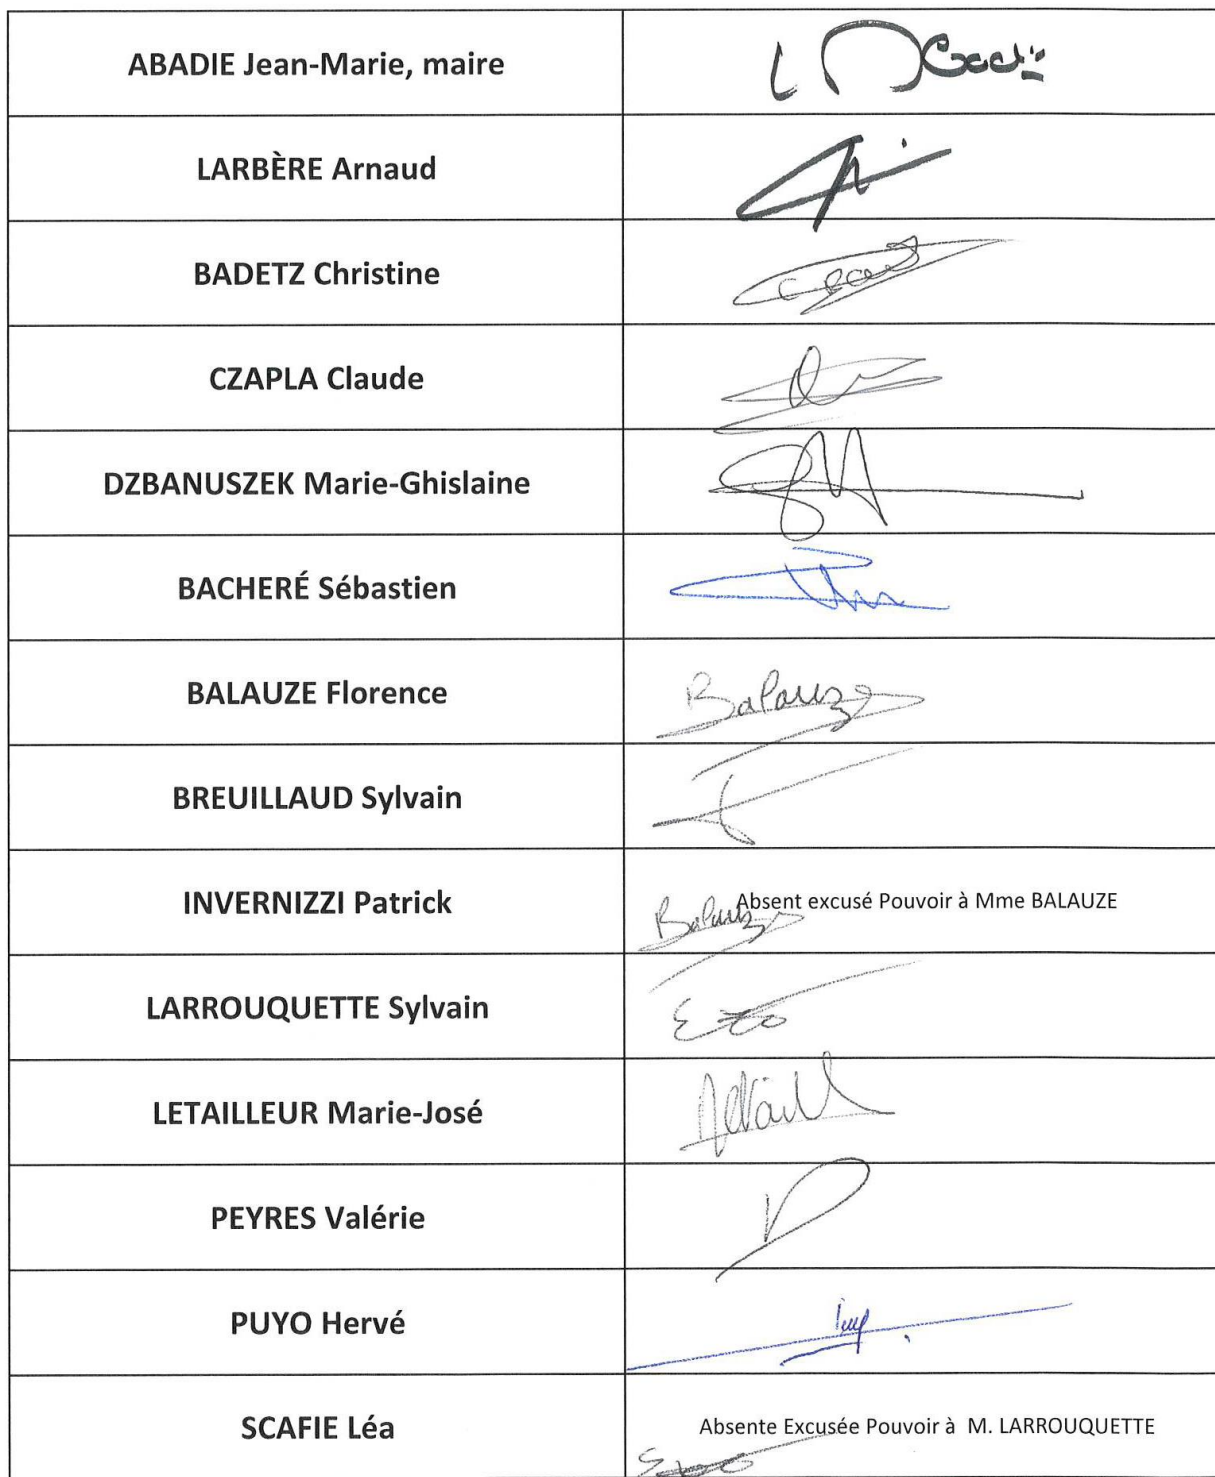 ABADIE Jean-Marie, maire
LARBÈRE Arnaud
BADETZ Christine
CZAPLA Claude
DZBANUSZEK Marie-Ghislaine
BACHERÉ Sébastien
BALAUZE Florence
Balauze
BREUILLAUD Sylvain
INVERNIZZI Patrick
Absent excusé Pouvoir à Mme BALAUZE
Balauze
LARROUQUETTE Sylvain
LETAILLEUR Marie-José
PEYRES Valérie
PUYO Hervé
SCAFIE Léa
Absente Excusée Pouvoir à M. LARROUQUETTE